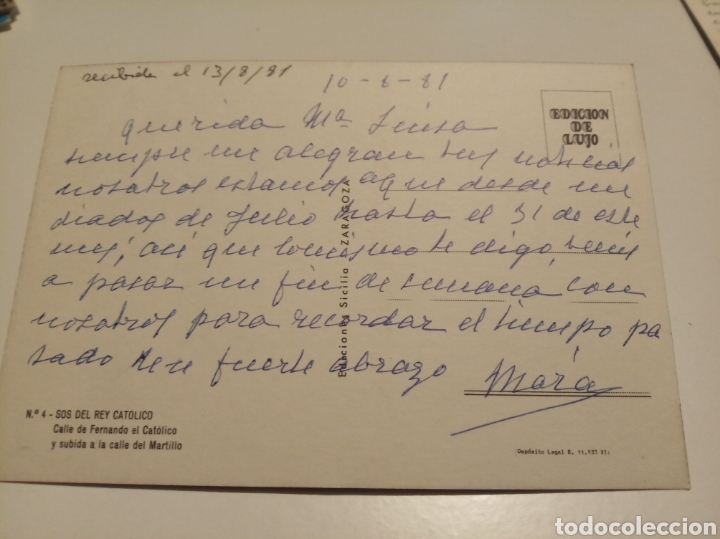 recibida el 13/8/81
10-8-81
EDICION
DE
LUJO
Querida Mª Luisa
siempre me alegran tus noticias
nosotros estamos aqui desde me
diados de Julio hasta el 31 de este
mes, asi que lo mismo te digo, venis
a pasar un fin de semana con
nosotros para recordar el tiempo pa
sado fuerte abrazo
Ediciones Sicilia ZARAGOZA
N.º 4 - SOS DEL REY CATOLICO
Calle de Fernando el Católico
y subida a la calle del Martillo
Depósito Legal B. 11.137
todocoleccion